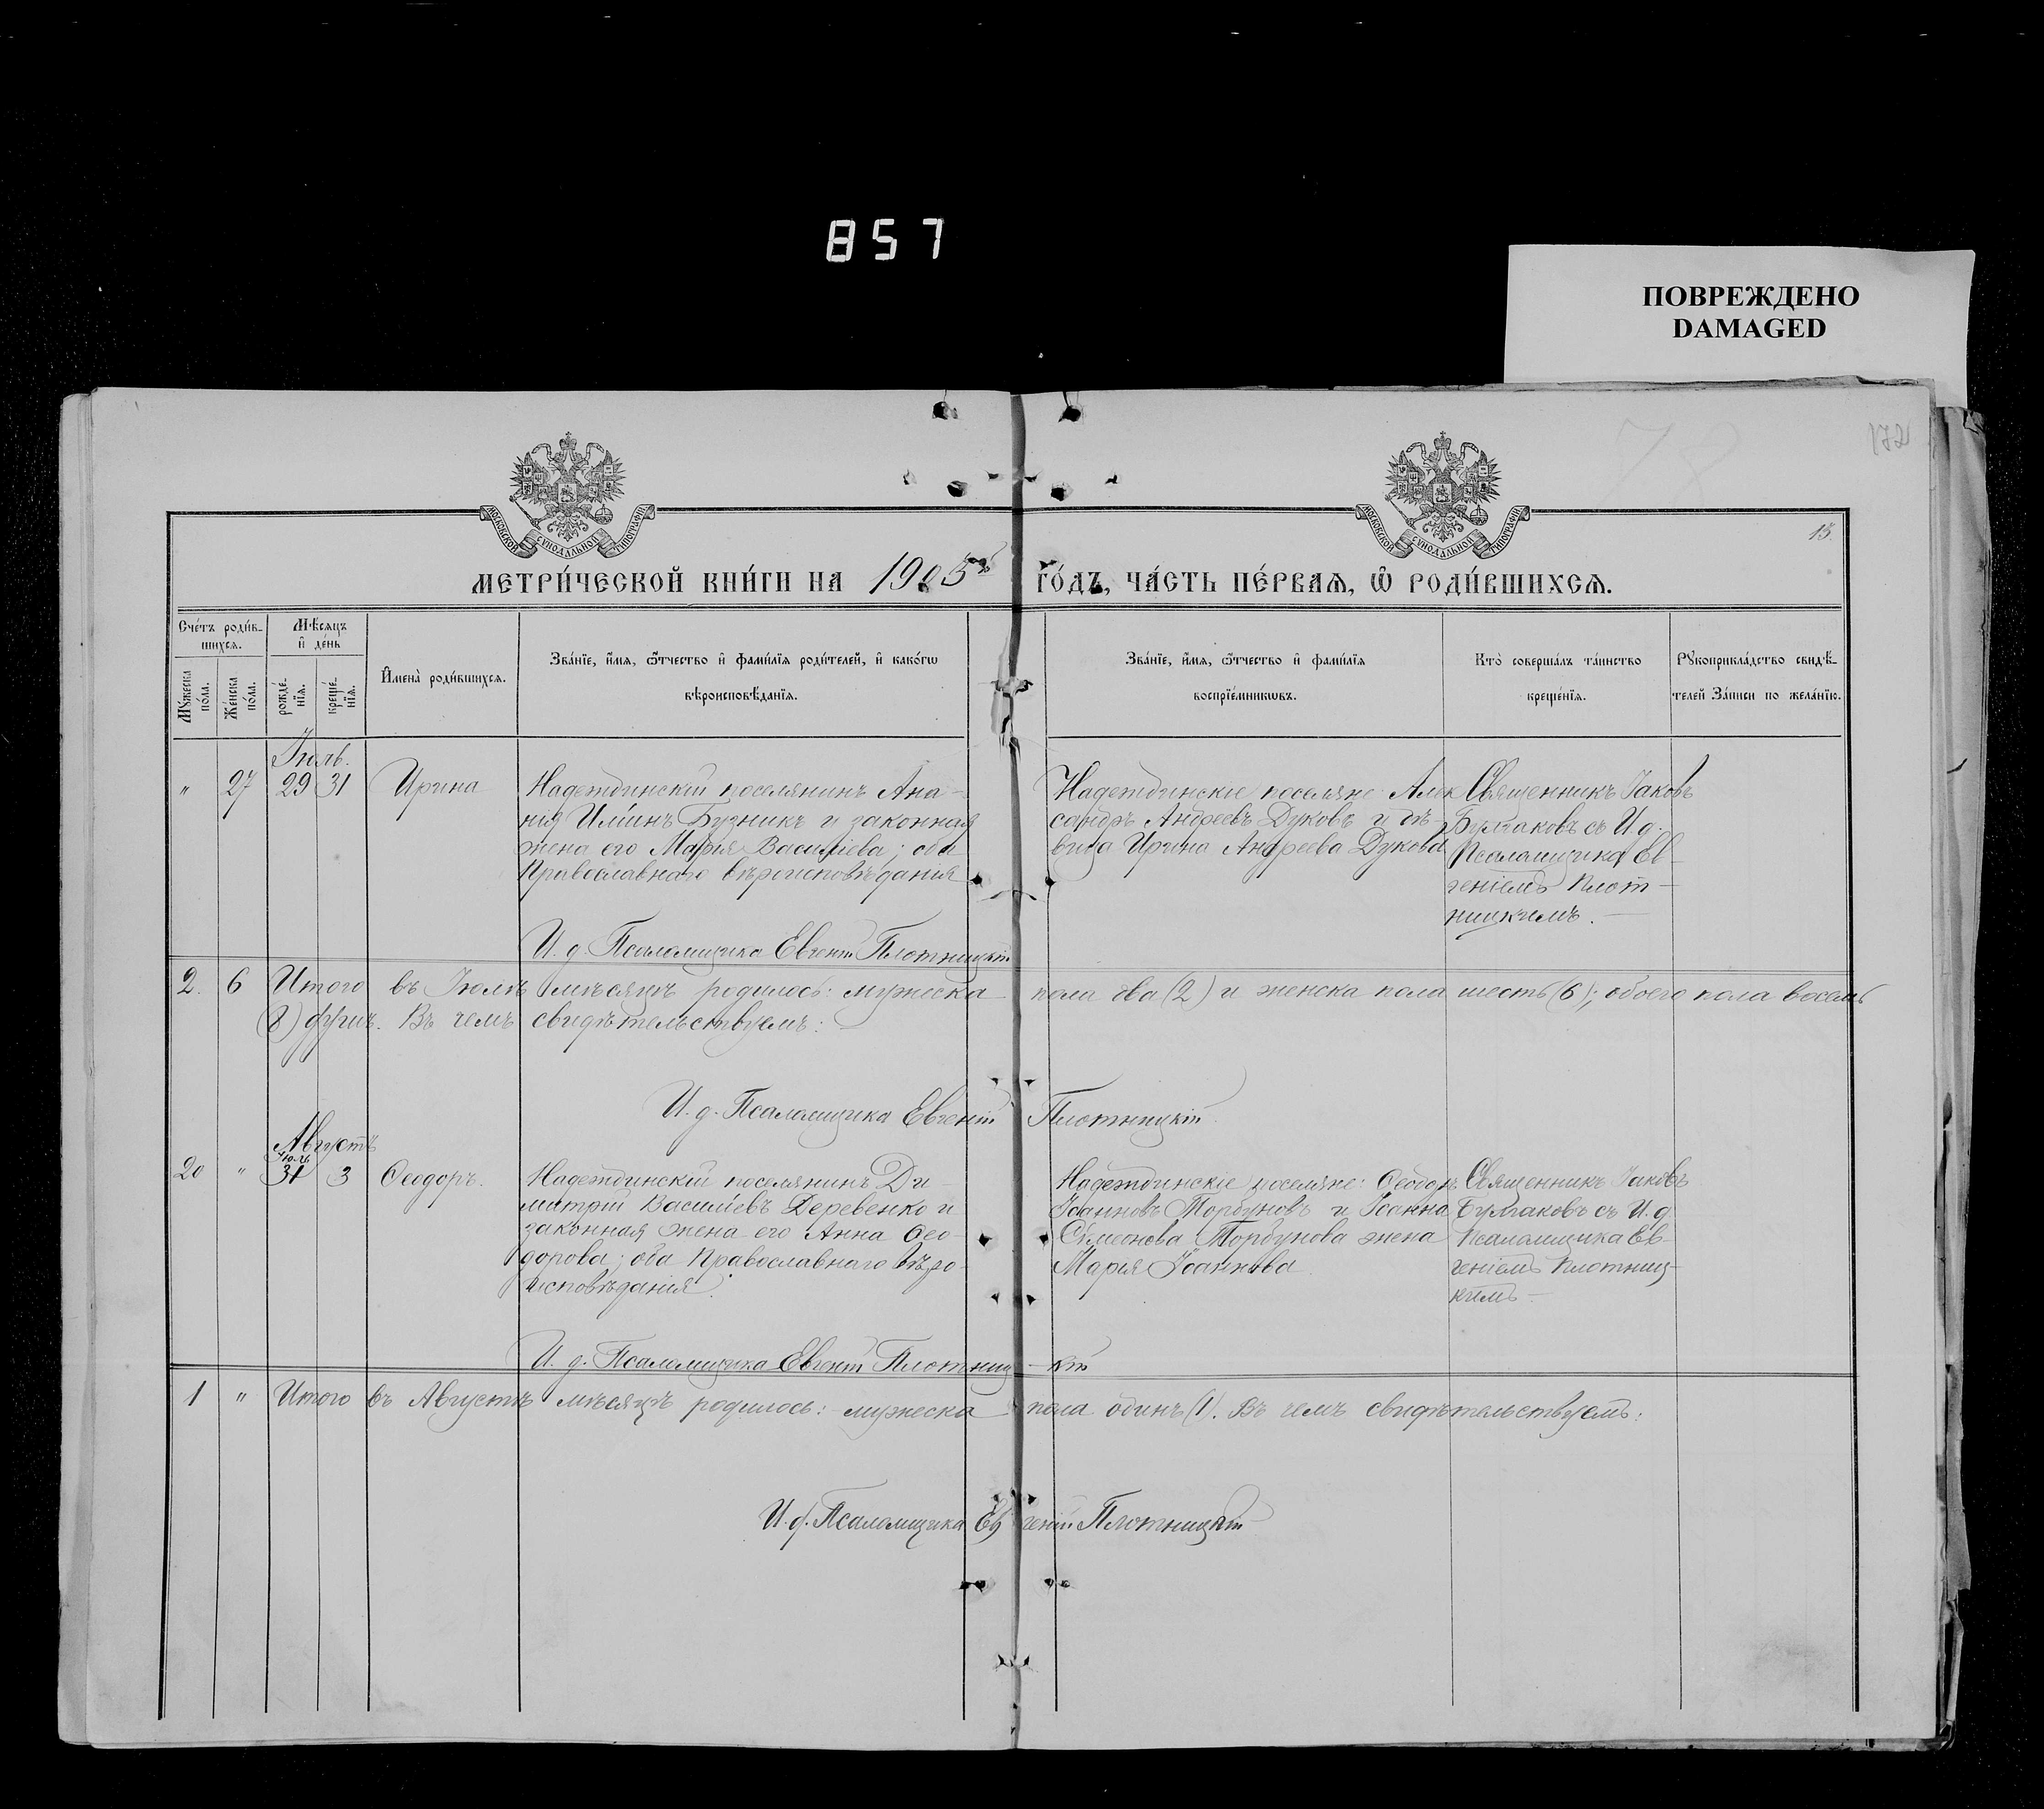 857
ПОВРЕЖДЕНО
DAMAGED
172
15.
МОСКОВСКОЙ СѴНОДАЛЬНОЙ ТИПОГРАФІИ
МОСКОВСКОЙ СѴНОДАЛЬНОЙ ТИПОГРАФІИ
МЕТРИ́ЧЕСКОЙ КНИ́ГИ НА 1905й ГО́ДЪ, ЧА́СТЬ ПЕ́РВАЯ, Ѿ РОДИ́ВШИХСЯ.
Сче́тъ роди́в-
шихся.
Мѣ́сяцъ
и҆ де́нь
Мꙋ́жеска
по́ла.
Же́нска
по́ла.
рожде́-
нїя.
креще́-
нїя.
И҆мена̀ роди́вшихся.
Зва́нїе, и҆́мя, ѻ҆́тчество и҆ фами́лїя роди́телей, и҆ како́гѡ
вѣроисповѣ́данїя.
Зва́нїе, и҆́мя, ѻ҆́тчество и҆ фами́лїя
воспрїе́мникѡвъ.
Кто̀ соверша́лъ та́инство
креще́нїя.
Рꙋкоприкла́дство свидѣ́-
телей За́писи по жела́нїю.
Іюль.
" 27 29 31 Ирина
Надеждинскій поселянинъ Ана-
нія Ильинъ Бузникъ и законная
жена его Марія Васильева; оба
Православнаго вѣроисповѣданія
Надеждинскіе поселяне Алек
сандръ Андреевъ Дуковъ и дѣ-
вица Ирина Андреева Дукова
Священникъ Іаковъ
Булгаковъ съ И.д.
Псаломщика Ев-
геніемъ Плот-
ницкимъ.
И. д. Псаломщика Евгеній Плотницкій
2. 6 Итого въ Іюлѣ мѣсяцѣ родилось: мужеска пола два (2) и женска пола шесть (6); обоего пола восемь
(8) душъ. Въ чемъ свидѣтельствуемъ:
И. д. Псаломщика Евгеній Плотницкій
Августъ
Іюль
20 " 31 3 Ѳеодоръ.
Надеждинскій поселянинъ Ди-
митрій Васильевъ Деревенко и
законная жена его Анна Ѳео-
дорова; оба Православнаго вѣро-
исповѣданія.
Надеждинскіе поселяне: Ѳеодоръ
Іоанновъ Торбуновъ и Іоанна
Сѵмеонова Торбунова жена
Марія Іоаннова
Священникъ Іаковъ
Булгаковъ съ И.д.
Псаломщика Ев-
геніемъ Плотниц-
кимъ
И. д. Псаломщика Евгеній Плотниц-кій
1 " Итого въ Августѣ мѣсяцѣ родилось: мужеска пола одинъ (1). Въ чемъ свидѣтельствуемъ:
И. д. Псаломщика Евгеній Плотницкій